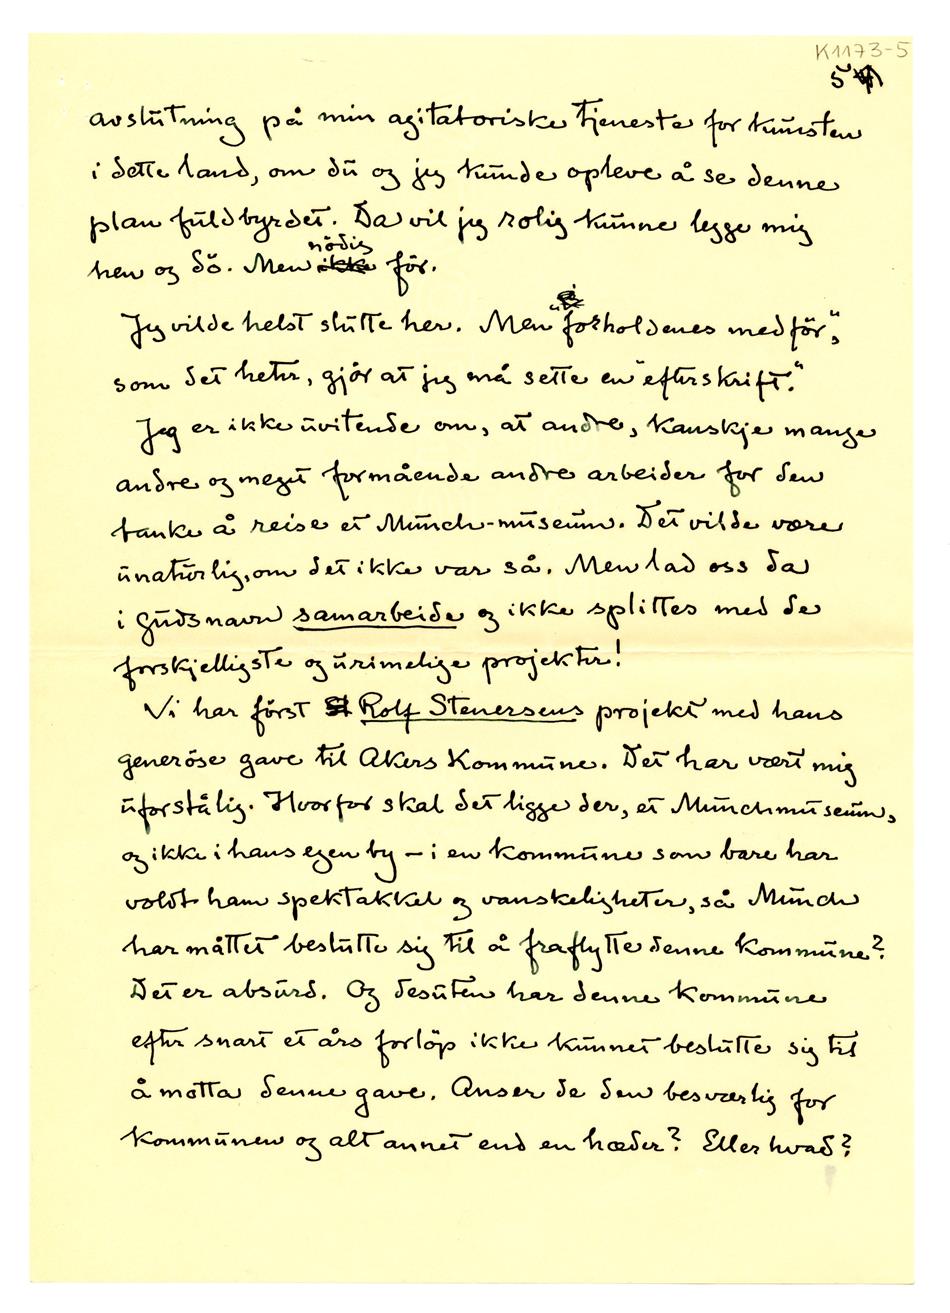 K1173-5
5
avslutning på min agitatoriske tjeneste for kunsten
i dette land, om du og jeg kunde opleve å se denne
plan fuldbyrdet. Da vil jeg rolig kunne legge mig
nödig
hen og dö. Men ikke för.
Jeg vilde helst slutte her. Men "forholdenes medför",
som det heter, gjör at jeg må sette en "efterskrift."
Jeg er ikke uvitende om, at andre, kanskje mange
andre og meget formående andre arbeider for den
tanke å reise et Munch-museum. Det vilde være
unaturlig, om det ikke var så. Men lad oss da
i Guds navn samarbeide og ikke splittes med de
forskjelligste og urimelige projekter!
Vi har först St Rolf Stenersens projekt med hans
generöse gave til Akers Kommune. Det har vært mig
uforståelig. Hvorfor skal det ligge der, et Munchmuseum,
og ikke i hans egen by – i en kommune som bare har
voldt ham spektakkel og vanskeligheter, så Munch
har måttet beslutte sig til å fraflytte denne kommune?
Det er absurd. Og desuten har denne kommune
efter snart et års forlöp ikke kunnet beslutte sig til
å motta denne gave. Anser de den besværlig for
kommunen og alt annet end en hæder? Eller hvad?